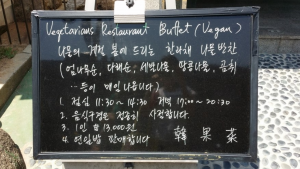 Vegetarians Restaurant Buffet (Vegan)
나물의 계절 봄에 드리는 한과채 나물 밥찬
(엄나무순, 다래순, 세발나물, 방풍나물, 곰취
...등이 매일 나옵니다)
1. 점심 11:30~14:30 저녁 17:00~20:30
2. 음식구경은 정중히 사절합니다.
3. 1인 13,000원
4. 연잎밥 판매합니다
韓果菜